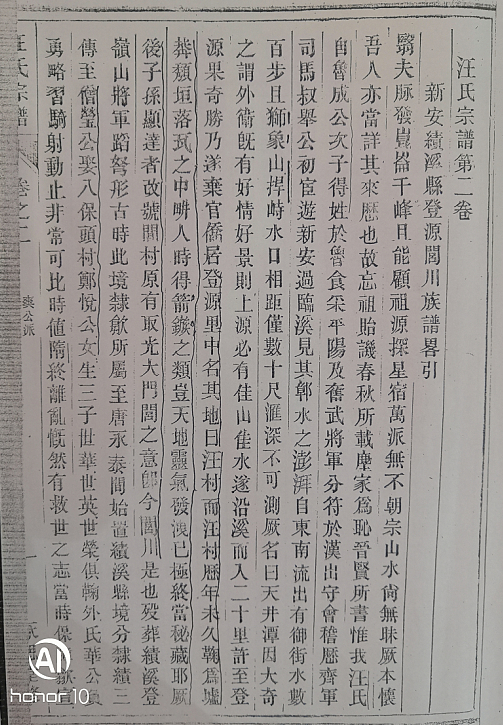 汪氏宗譜第二卷
新安績溪縣登源閥川族譜畧引
翳夫脉發崑崙千峰且能顧祖源探星宿萬派無不朝宗山水尙無昧厥本懷
吾人亦當詳其來歷也故忘祖貽譏春秋所載棄家爲恥晉賢所書惟我汪氏
自魯成公次子得姓於魯食采平陽及奮武將軍分符於漢出守會稽歷齊軍
司馬叔舉公初宦遊新安過臨溪見其鄣水之澎湃自東南流出有御街水數
百步且獅象山捍峙水口相距僅數十尺滙深不可測厥名曰天井潭因大奇
之謂外衛旣有好情好景則上源必有佳山佳水遂沿溪而入二十里許至登
源果奇勝乃遂棄官僑居登源里中名其地曰汪村而汪村歷年未久鞠爲墟
葬頹垣落瓦之中畊人時得箭鏃之類豈天地靈氣發洩已極終當秘藏耶厥
後子孫顯達者改號閥村原有取光大門閭之意卽今閥川是也歿葬績溪登
嶺山將軍蹈弩形古時此境隸歙所屬至唐永泰間始置績溪縣境分隸績三
傳至僧瑩公娶八保頭村鄭悅公女生三子世華世英世榮俱鞠外氏華公負
勇略習騎射動止非常可比時値隋終離亂慨然有救世之志當時保
汪氏宗譜
卷之二
爽公派
AI
honor 10